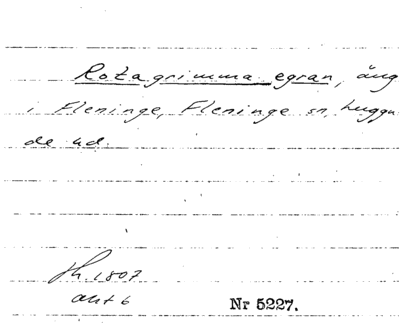 Rotagrimma egran, äng
i Fleninge, Fleninge sn, Luggu
de hd.
Sk. 1807
akt 6
Nr 5227.